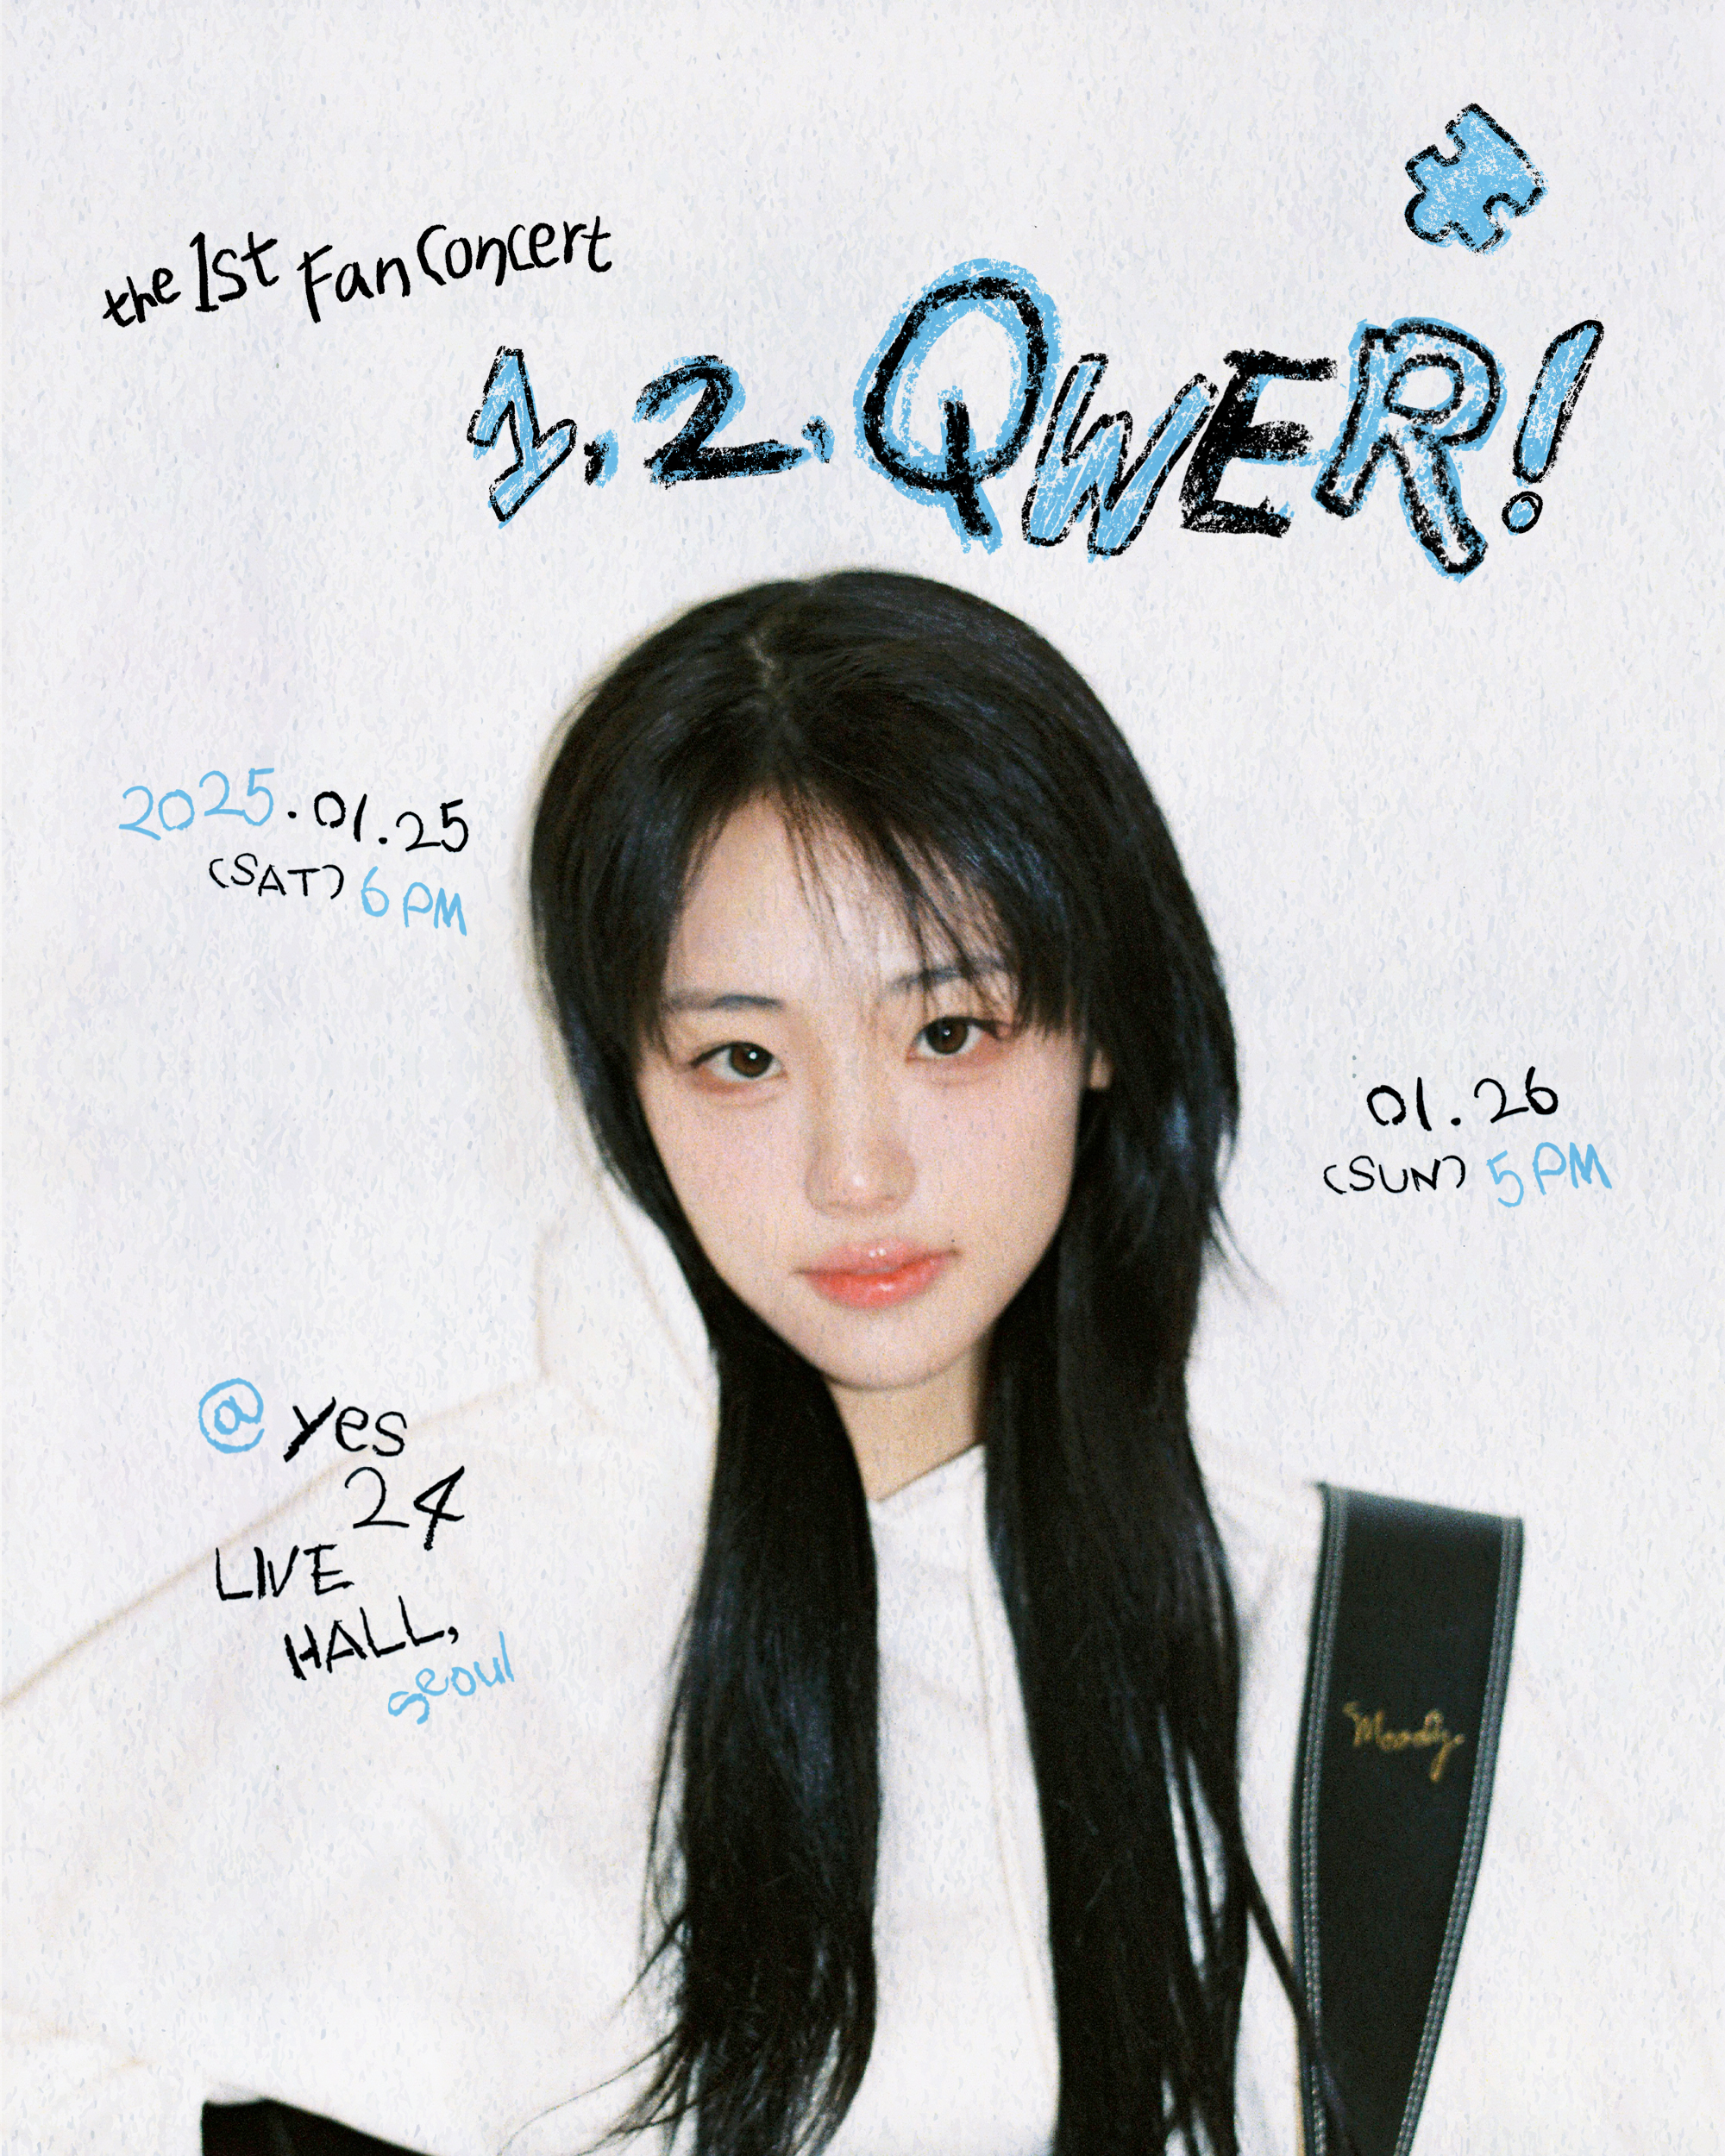 the 1st Fan Concert
1, 2. QWER!
2025.01.25
(SAT) 6 PM
01.26
(SUN) 5 PM
@ yes
24
LIVE
HALL,
seoul
Moody